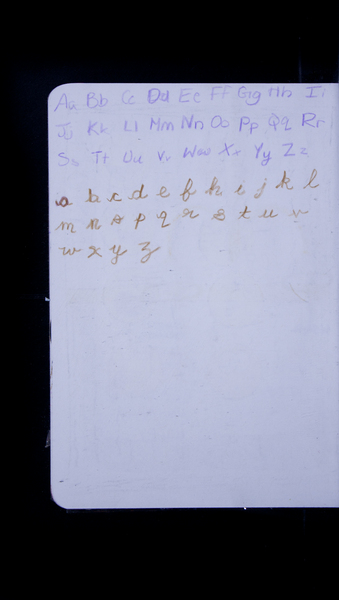 Aa Bb Cc Dd Ee Ff Gg Hh Ii
Jj Kk Ll Mm Nn Oo Pp Qq Rr
Ss Tt Uu Vv Ww Xx Yy Zz
a b c d e f h i j k l
m n o p q r s t u v
w x y z